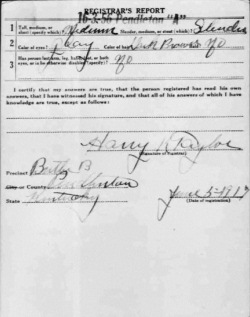 REGISTRAR'S REPORT
16-3-36 Pendleton "A"
1 Tall, medium, or short (specify which)? Medium Slender, medium, or stout (which)? Slender
2 Color of eyes? Gray Color of hair? Dark Brown No
3 Has person lost arm, leg, hand, foot, or both eyes, or is he otherwise disabled (specify)? No
I certify that my answers are true, that the person registered has read his own answers, that I have witnessed his signature, and that all of his answers of which I have knowledge are true, except as follows:
Harry
(Signature of registrar)
Precinct Butler B
City or County
State Kentucky
June 5-1917
(Date of registration)